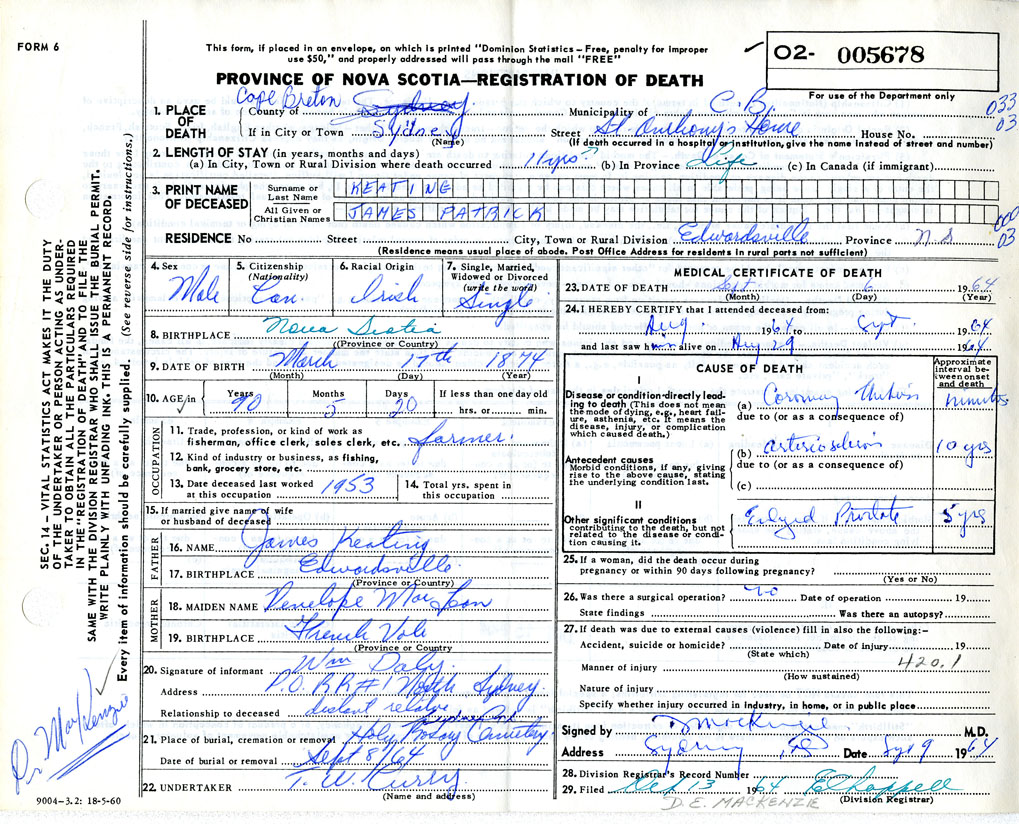 FORM 6
This form, if placed in an envelope, on which is printed "Dominion Statistics – Free, penalty for improper
use $50," and properly addressed will pass through the mail "FREE"
O2- 005678
For use of the Department only
PROVINCE OF NOVA SCOTIA—REGISTRATION OF DEATH
1. PLACE OF DEATH
County of Cape Breton Sydney Municipality of C.B. 033
If in City or Town Sydney Street St. Anthony's Home House No. 03
(Name) (If death occurred in a hospital or institution, give name instead of street and number)
2. LENGTH OF STAY (in years, months and days)
(a) In City, Town or Rural Division where death occurred 11 yrs (b) In Province Life (c) In Canada (if immigrant)
3. PRINT NAME OF DECEASED
Surname or Last Name KEATING
All Given or Christian Names JAMES PATRICK
000
03
RESIDENCE No Street City, Town or Rural Division Edwardsville Province N.S
(Residence means usual place of abode. Post Office Address for residents in rural parts not sufficient)
4. Sex Male
5. Citizenship (Nationality) Can.
6. Racial Origin Irish
7. Single, Married, Widowed or Divorced (write the word) Single
8. BIRTHPLACE Nova Scotia
(Province or Country)
9. DATE OF BIRTH March 17th 1874
(Month) (Day) (Year)
10. AGE/in Years 90 Months 5 Days 20 If less than one day old hrs. or min.
OCCUPATION
11. Trade, profession, or kind of work as
fisherman, office clerk, sales clerk, etc. farmer.
12. Kind of industry or business, as fishing,
bank, grocery store, etc.
13. Date deceased last worked at this occupation 1953
14. Total yrs. spent in this occupation
15. If married give name of wife
or husband of deceased
FATHER
16. NAME James Keating
17. BIRTHPLACE Edwardsville
(Province or Country)
MOTHER
18. MAIDEN NAME Penelope Mac Lean
19. BIRTHPLACE French Vale
(Province or Country
20. Signature of informant Wm Daly.
Address P.O. RR#1 North Sydney.
Relationship to deceased distant relative
21. Place of burial, cremation or removal Holy Rosary Cemetery
Date of burial or removal Sept 8/64
22. UNDERTAKER T. W. Curry
(Name and address)
MEDICAL CERTIFICATE OF DEATH
23. DATE OF DEATH Sept 6 1964
(Month) (Day) (Year)
24. I HEREBY CERTIFY that I attended deceased from:
Aug. 1964 to Sept 1964
and last saw him alive on Aug 29 1964
CAUSE OF DEATH
Approximate interval between onset and death
I
Disease or condition directly leading to death (This does not mean
the mode of dying, e.g., heart failure, asthenia, etc. It means the
disease, injury, or complication
which caused death.)
(a) Coronary minutes
due to (or as a consequence of)
Antecedent causes
Morbid conditions, if any, giving
rise to the above cause, stating
the underlying condition last.
(b) arteriosclerosis 10 yrs
due to (or as a consequence of)
(c)
II
Other significant conditions
contributing to the death, but not
related to the disease or condition causing it.
Enlarged Prostate 5 yrs
25. If a woman, did the death occur during
pregnancy or within 90 days following pregnancy?
(Yes or No)
26. Was there a surgical operation? no Date of operation 19
State findings Was there an autopsy?
27. If death was due to external causes (violence) fill in also the following:–
Accident, suicide or homicide? Date of injury 19
(State which)
Manner of injury 420.1
(How sustained)
Nature of injury
Specify whether injury occurred in Industry, in home, or in public place
Signed by MacKenzie M.D.
Address Sydney, Date Sept 9 1964
28. Division Registrar's Record Number
29. Filed 13 1964 E Chappell
(Division Registrar)
D. E. MACKENZIE
SEC. 14 – VITAL STATISTICS ACT MAKES IT THE DUTY
OF THE UNDERTAKER OR PERSON ACTING AS UNDERTAKER TO OBTAIN ALL THE PARTICULARS REQUIRED
IN THE "REGISTRATION OF DEATH" AND TO FILE THE
SAME WITH THE DIVISION REGISTRAR WHO SHALL ISSUE THE BURIAL PERMIT.
WRITE PLAINLY WITH UNFADING INK. THIS IS A PERMANENT RECORD.
Every item of information should be carefully supplied. (See reverse side for instructions.)
Dr. MacKenzie
9004–3.2: 18-5-60